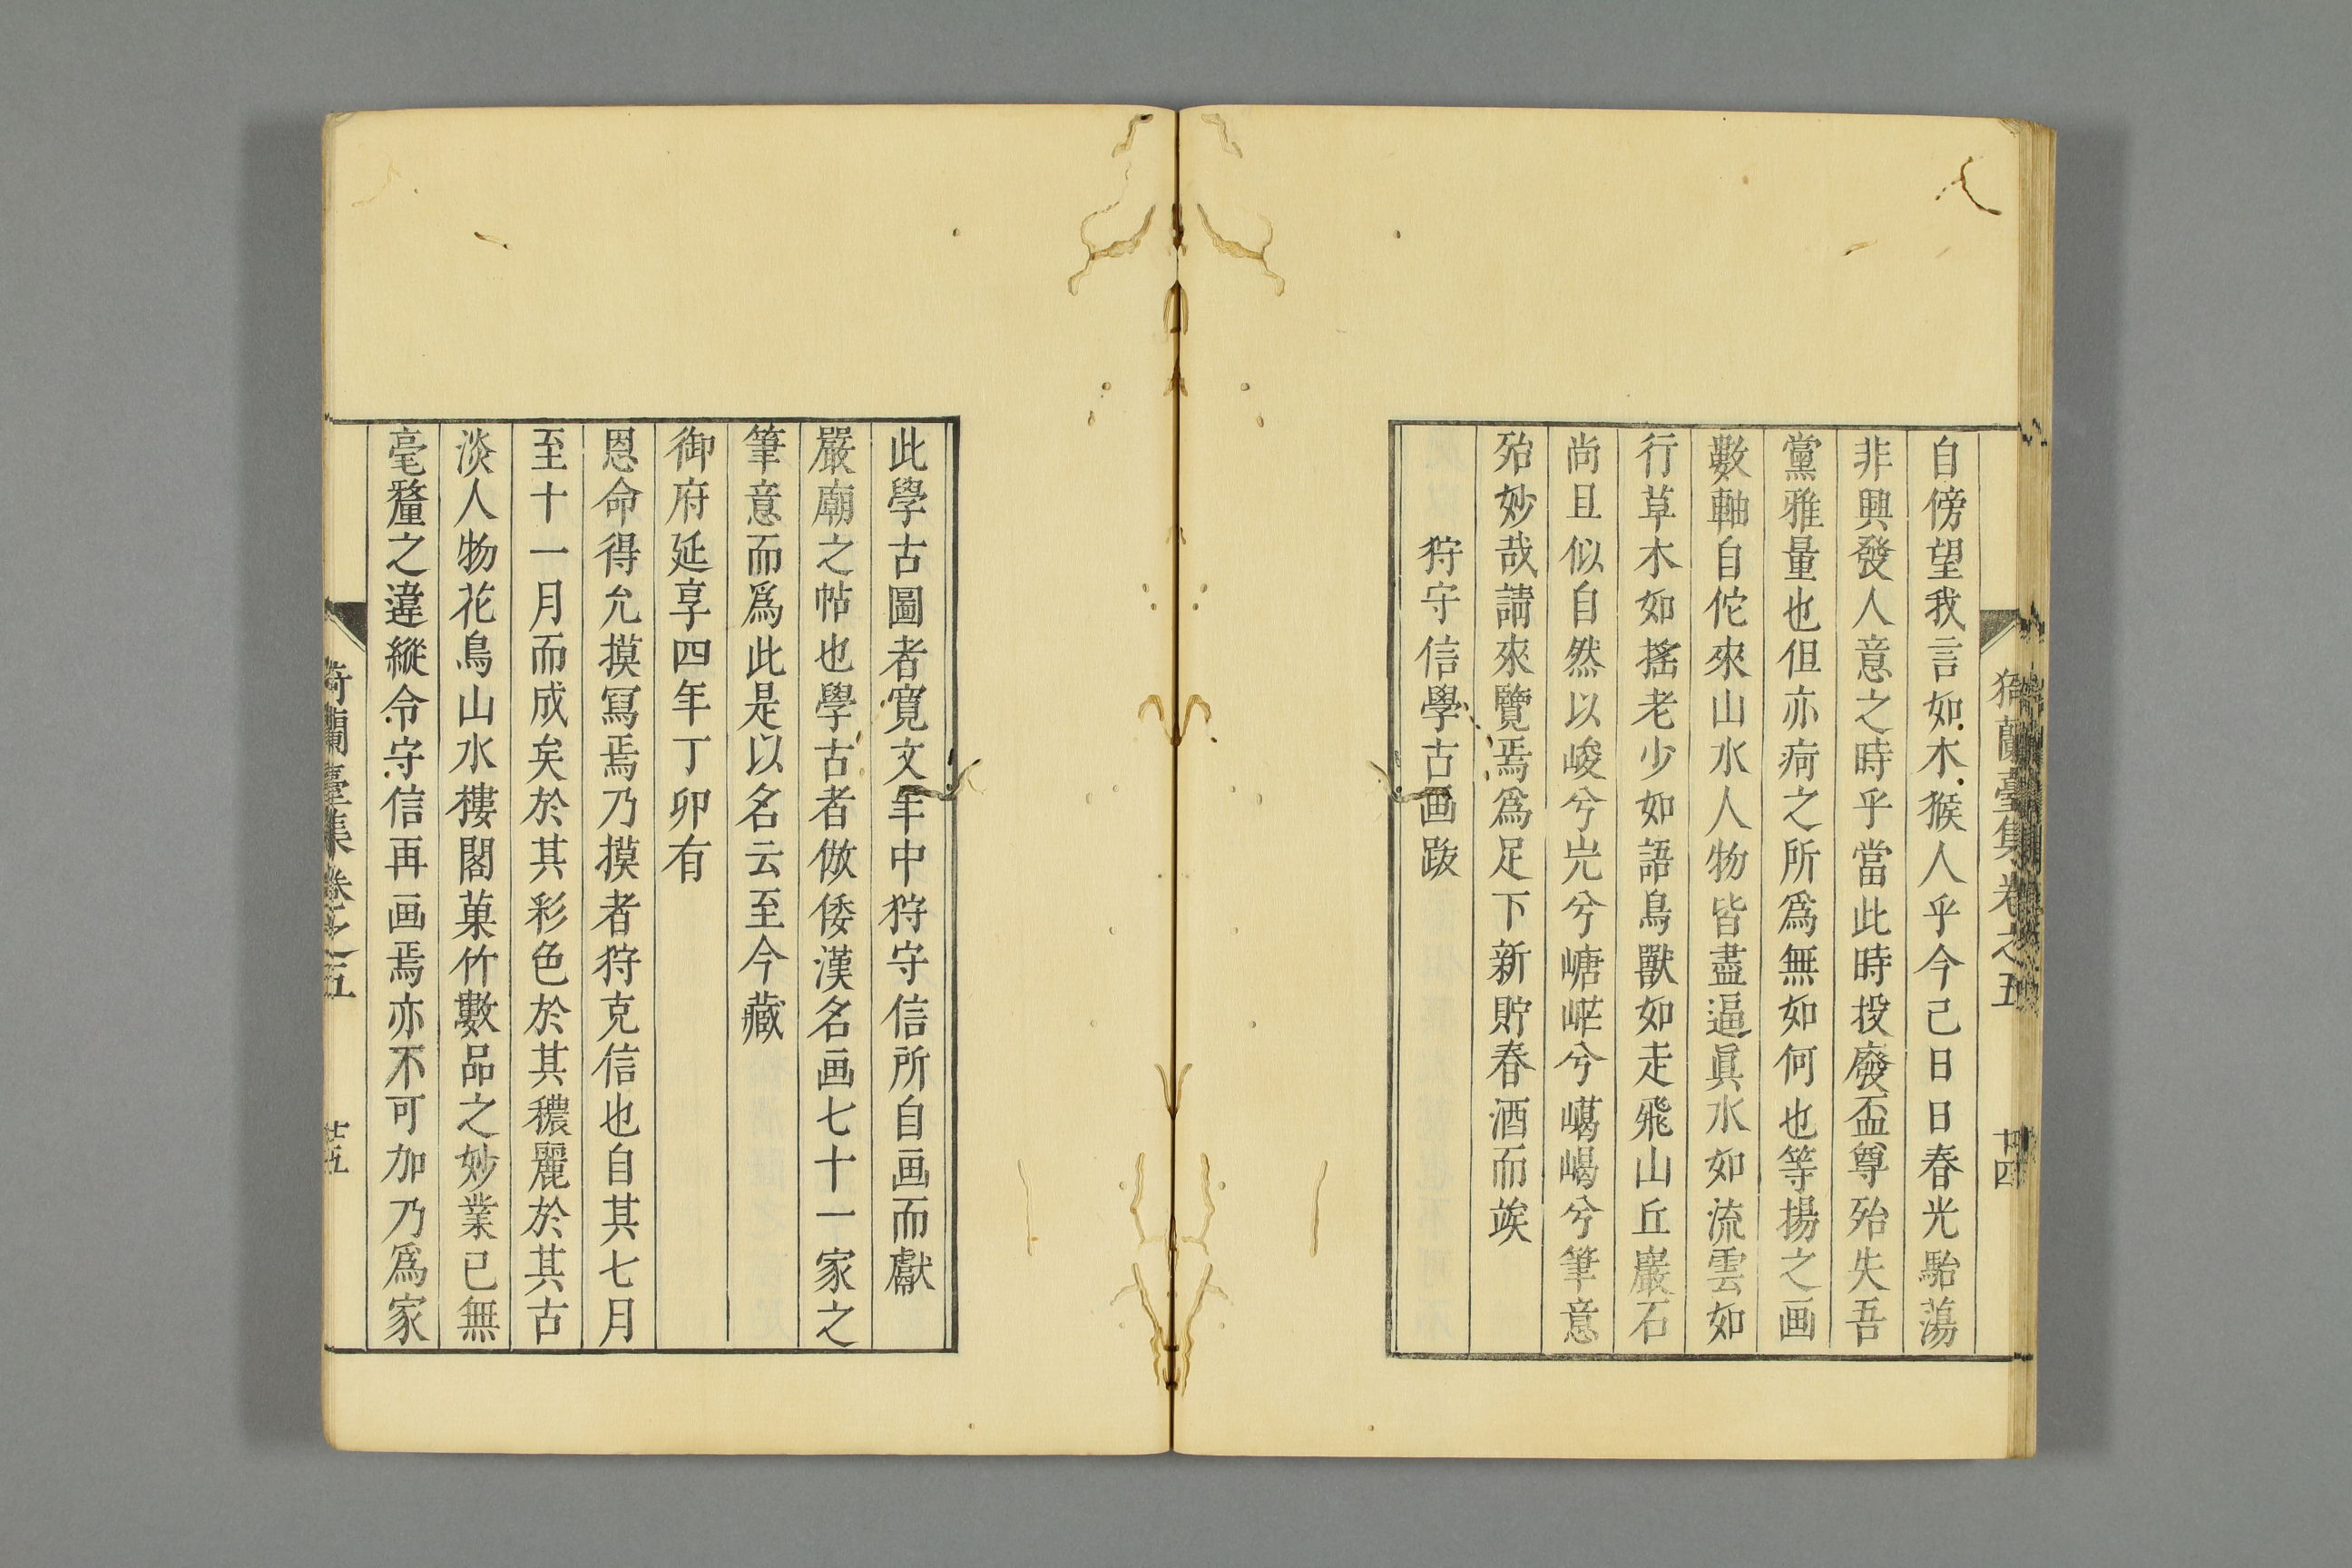 猗蘭臺集卷之五　廿四
自傍望我言如木猴人乎今己日日春光駘蕩
非興發人意之時乎當此時投廢盃尊殆失吾
黨雅量也但亦痾之所爲無如何也等揚之画
數軸自佗來山水人物皆盡逼眞水如流雲如
行草木如搖老少如語鳥獸如走飛山丘巖石
尚且似自然以峻兮岏兮嵣㟐兮㠍嵑兮筆意
殆妙哉請來覽焉爲足下新貯春酒而竢
狩守信學古画跋
此學古圖者寬文年中狩守信所自画而獻
嚴廟之帖也學古者倣倭漢名画七十一家之
筆意而爲此是以名云至今藏
御府延享四年丁卯有
恩命得允摸冩焉乃摸者狩克信也自其七月
至十一月而成矣於其彩色於其穠麗於其古
淡人物花鳥山水樓閣菓竹數品之妙業已無
毫釐之違縱令守信再画焉亦不可加乃爲家
猗蘭臺集卷之五　廿五